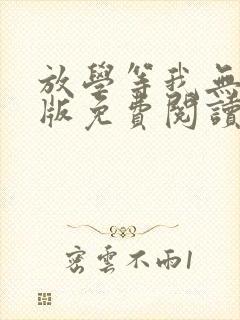 放學等我無
版免費閱讀
密雲不雨1